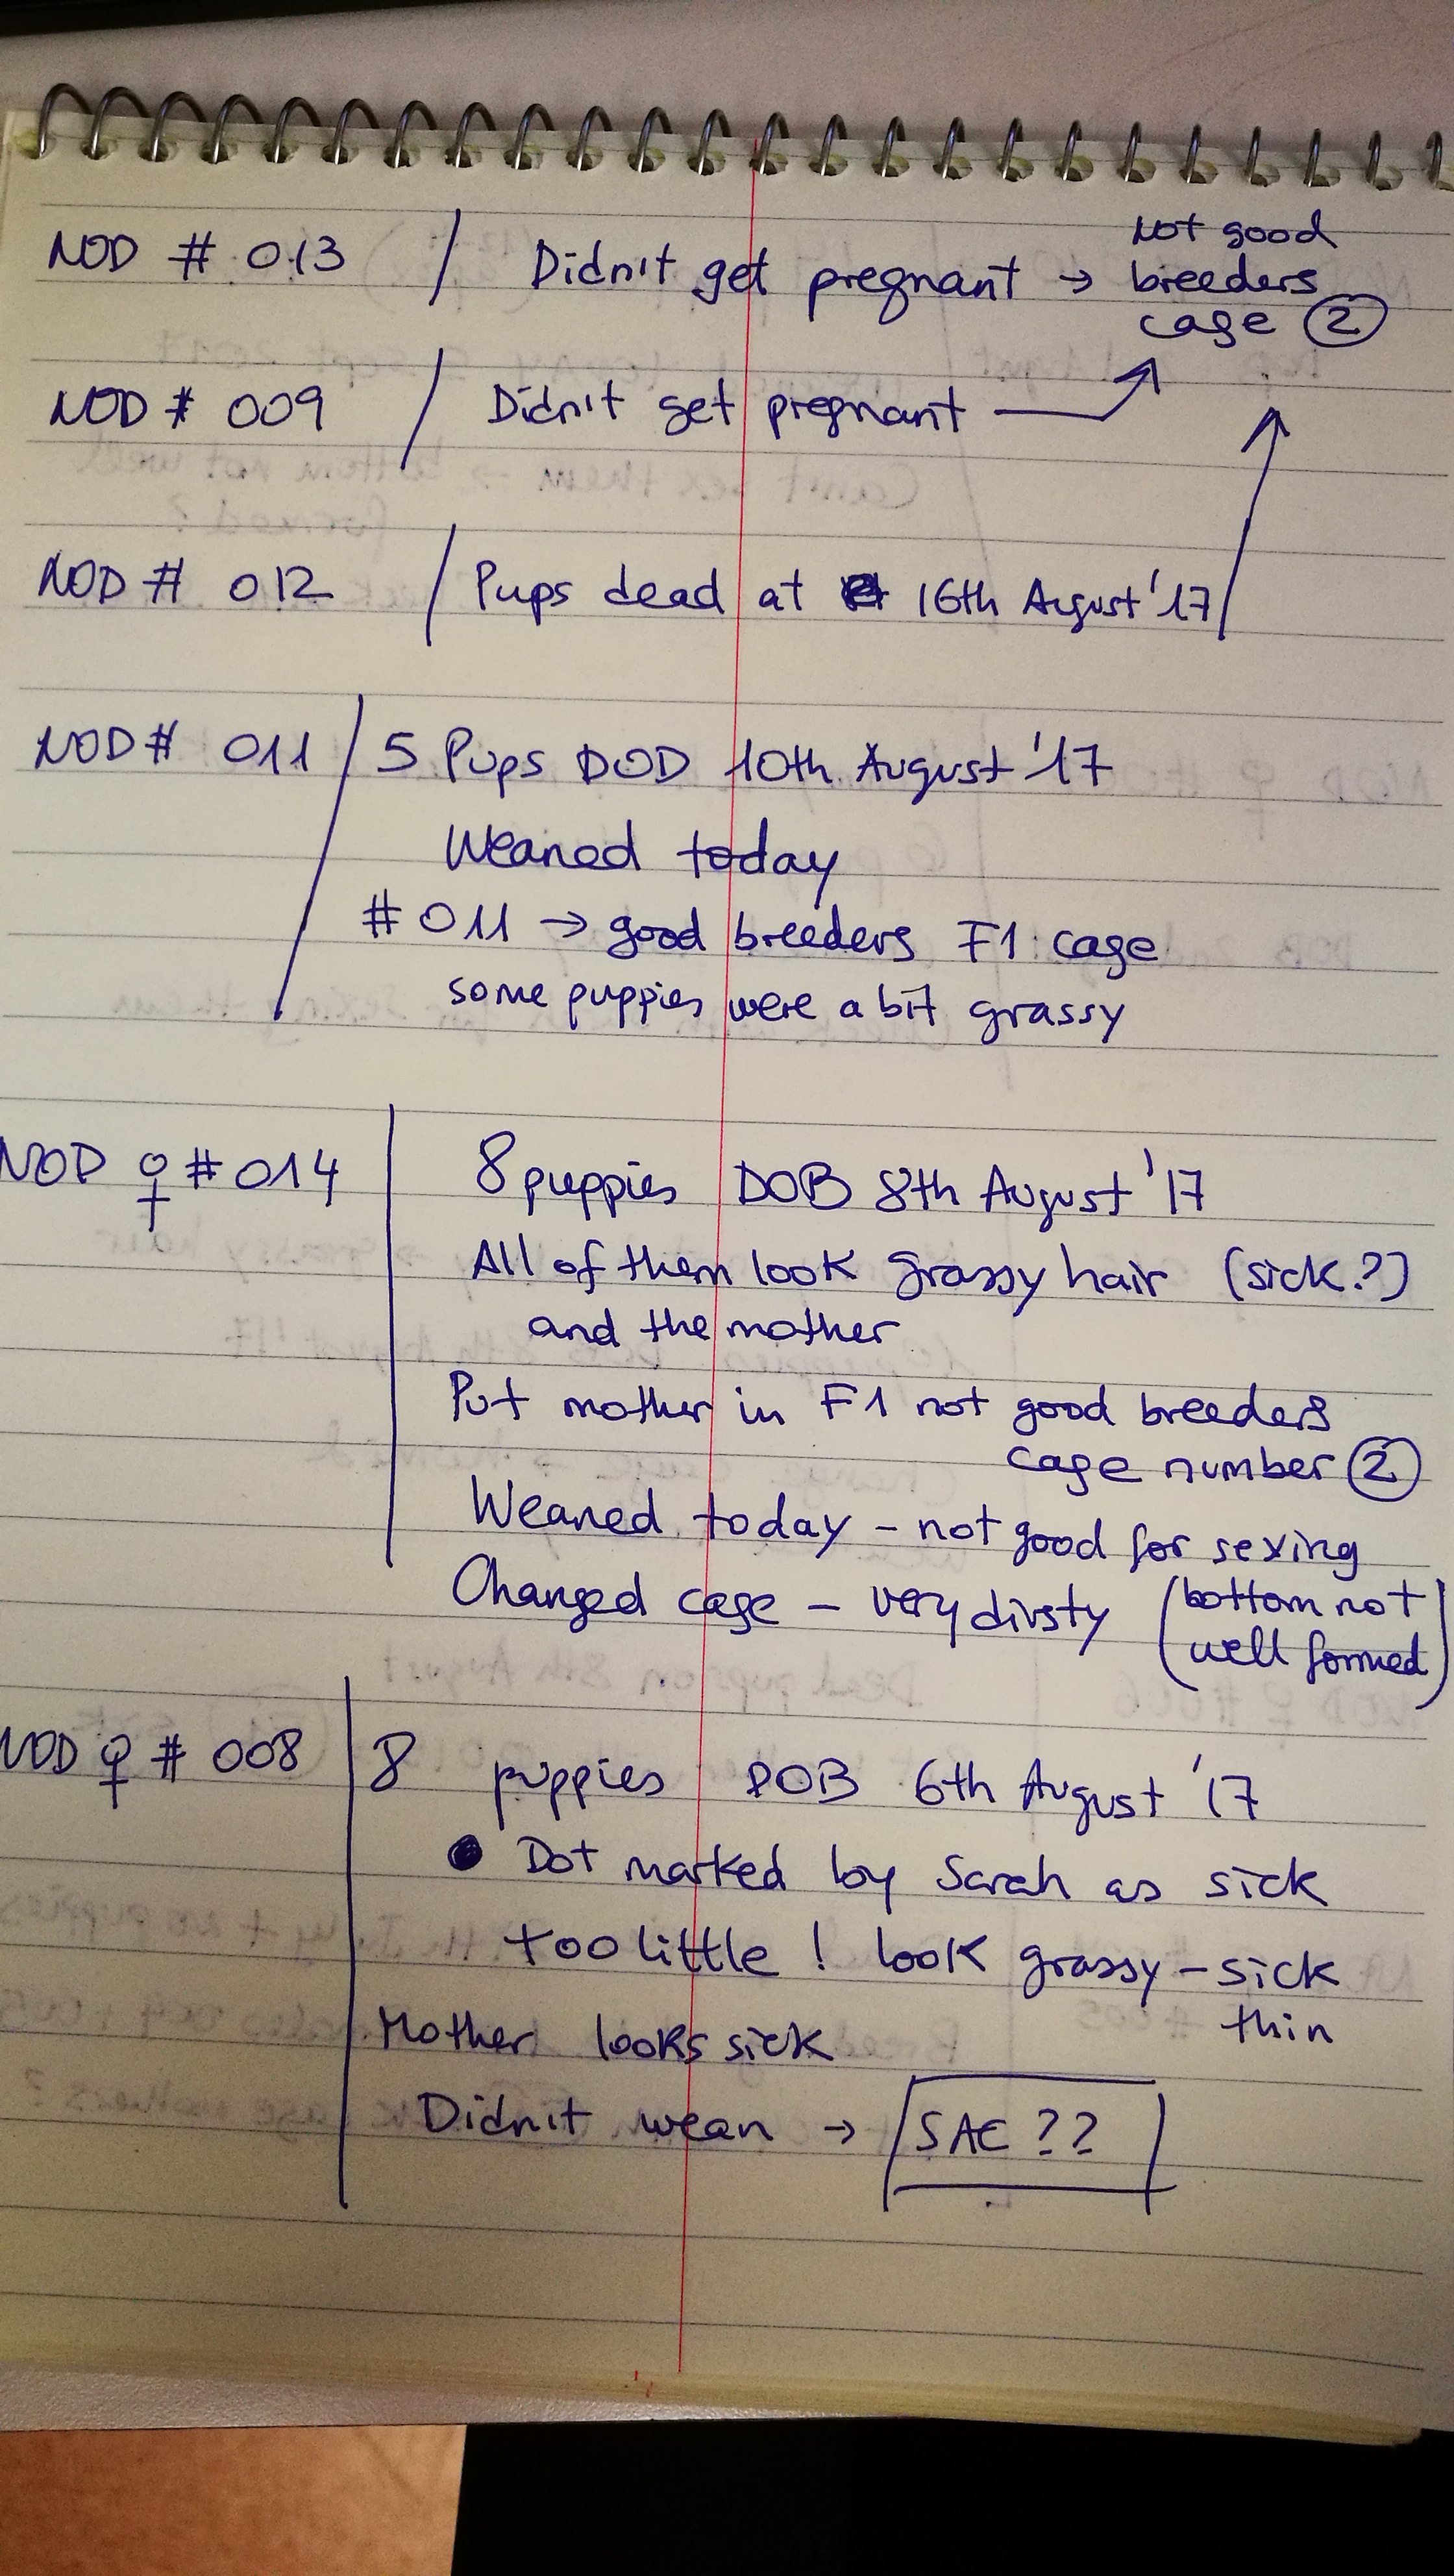 NOD # 013 / Didn't get pregnant → Not good
breeders
cage ②
NOD # 009 / Didn't get pregnant
NOD # 012 / Pups dead at 16th August '17
NOD # 011 / 5 Pups DOD 10th August '17
Weaned today
# 011 → good breeders F1 cage
some puppies were a bit grassy
NOD ♀ # 014 8 puppies DOB 8th August '17
All of them look grassy hair (sick?)
and the mother
Put mother in F1 not good breeders
cage number ②
Weaned today - not good for sexing
Changed cage - very dirsty (bottom not
well formed)
NOD ♀ # 008 8 puppies DOB 6th August '17
● Dot marked by Sarah as sick
too little! look grassy - sick
thin
Mother looks sick
Didn't wean → SAC ??